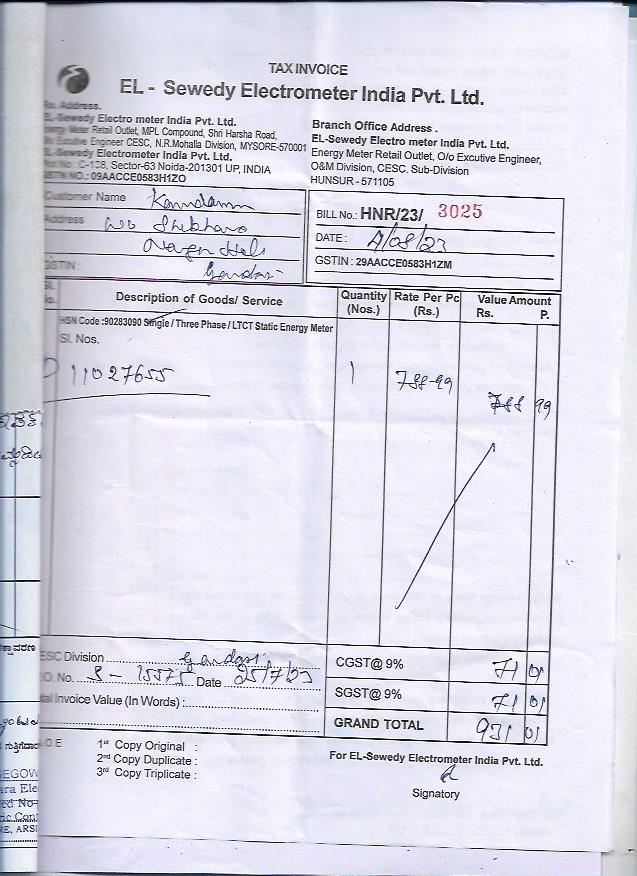 TAX INVOICE
EL - Sewedy Electrometer India Pvt. Ltd.
Address.
EL-Sewedy Electro meter India Pvt. Ltd.
Energy Meter Retail Outlet, MPL Compound, Shri Harsha Road,
Engineer CESC, N.R.Mohalla Division, MYSORE-570001
EL-Sewedy Electrometer India Pvt. Ltd.
C-108, Sector-63 Noida-201301 UP, INDIA
GSTIN NO.: 09AACCE0583H1ZO
Branch Office Address .
EL-Sewedy Electro meter India Pvt. Ltd.
Energy Meter Retail Outlet, O/o Excutive Engineer,
O&M Division, CESC. Sub-Division
HUNSUR - 571105
Customer Name
Address
GSTIN :
BILL No.: HNR/23/ 3025
DATE : /08/23
GSTIN : 29AACCE0583H1ZM
Sl. No. Description of Goods/ Service Quantity (Nos.) Rate Per Pc (Rs.) Value Amount Rs. P.
HSN Code :90283090 Single / Three Phase / LTCT Static Energy Meter
Sl. Nos.
11027655 1 788-99 788 99
CESC Division
P.O. No. S - 15575 Date 25/7/23
Total Invoice Value (In Words) :
CGST@ 9% 71 01
SGST@ 9% 71 01
GRAND TOTAL 931 01
E.O E
1st Copy Original :
2nd Copy Duplicate :
3rd Copy Triplicate :
For EL-Sewedy Electrometer India Pvt. Ltd.
Signatory